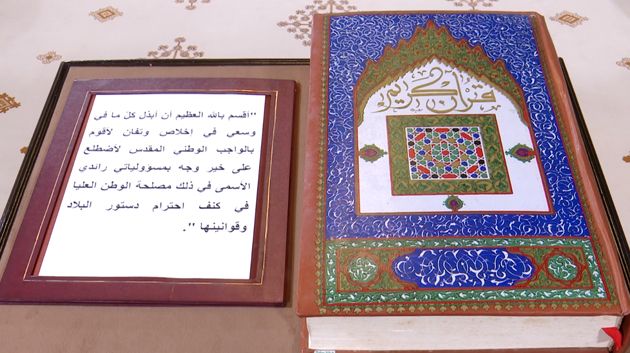 "أقسم بالله العظيم أن أبذل كل ما في
وسعي في إخلاص وتفان لأقوم
بالواجب الوطني المقدس لأضطلع
على خير وجه بمسؤولياتي رائدي
الأسمى في ذلك مصلحة الوطن العليا
في كنف احترام دستور البلاد
وقوانينها".
قرآن كريم